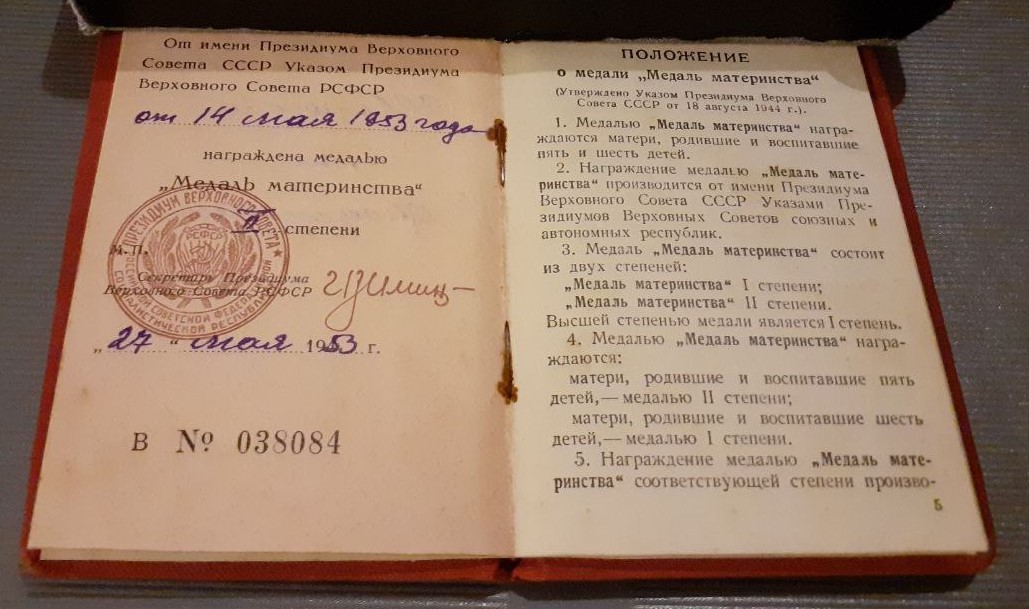 От имени Президиума Верховного
Совета СССР Указом Президиума
Верховного Совета РСФСР
от 14 мая 1953 года
награждена медалью
„Медаль материнства“
II степени
М. П.
Секретарь Президиума
Верховного Совета РСФСР
„27“ мая 1953 г.
В № 038084
ПРЕЗИДИУМ ВЕРХОВНОГО СОВЕТА
РОССИЙСКОЙ СОВЕТСКОЙ ФЕДЕРАТИВНОЙ
СОЦИАЛИСТИЧЕСКОЙ РЕСПУБЛИКИ
РСФСР
ПОЛОЖЕНИЕ
о медали „Медаль материнства“
(Утверждено Указом Президиума Верховного
Совета СССР от 18 августа 1944 г.).
1. Медалью „Медаль материнства“ награ-
ждаются матери, родившие и воспитавшие
пять и шесть детей.
2. Награждение медалью „Медаль мате-
ринства“ производится от имени Президиума
Верховного Совета СССР Указами Пре-
зидиумов Верховных Советов союзных и
автономных республик.
3. Медаль „Медаль материнства“ состоит
из двух степеней:
„Медаль материнства“ I степени;
„Медаль материнства“ II степени.
Высшей степенью медали является I степень.
4. Медалью „Медаль материнства“ награ-
ждаются:
матери, родившие и воспитавшие пять
детей,— медалью II степени;
матери, родившие и воспитавшие шесть
детей,— медалью I степени.
5. Награждение медалью „Медаль мате-
ринства“ соответствующей степени произво-
5